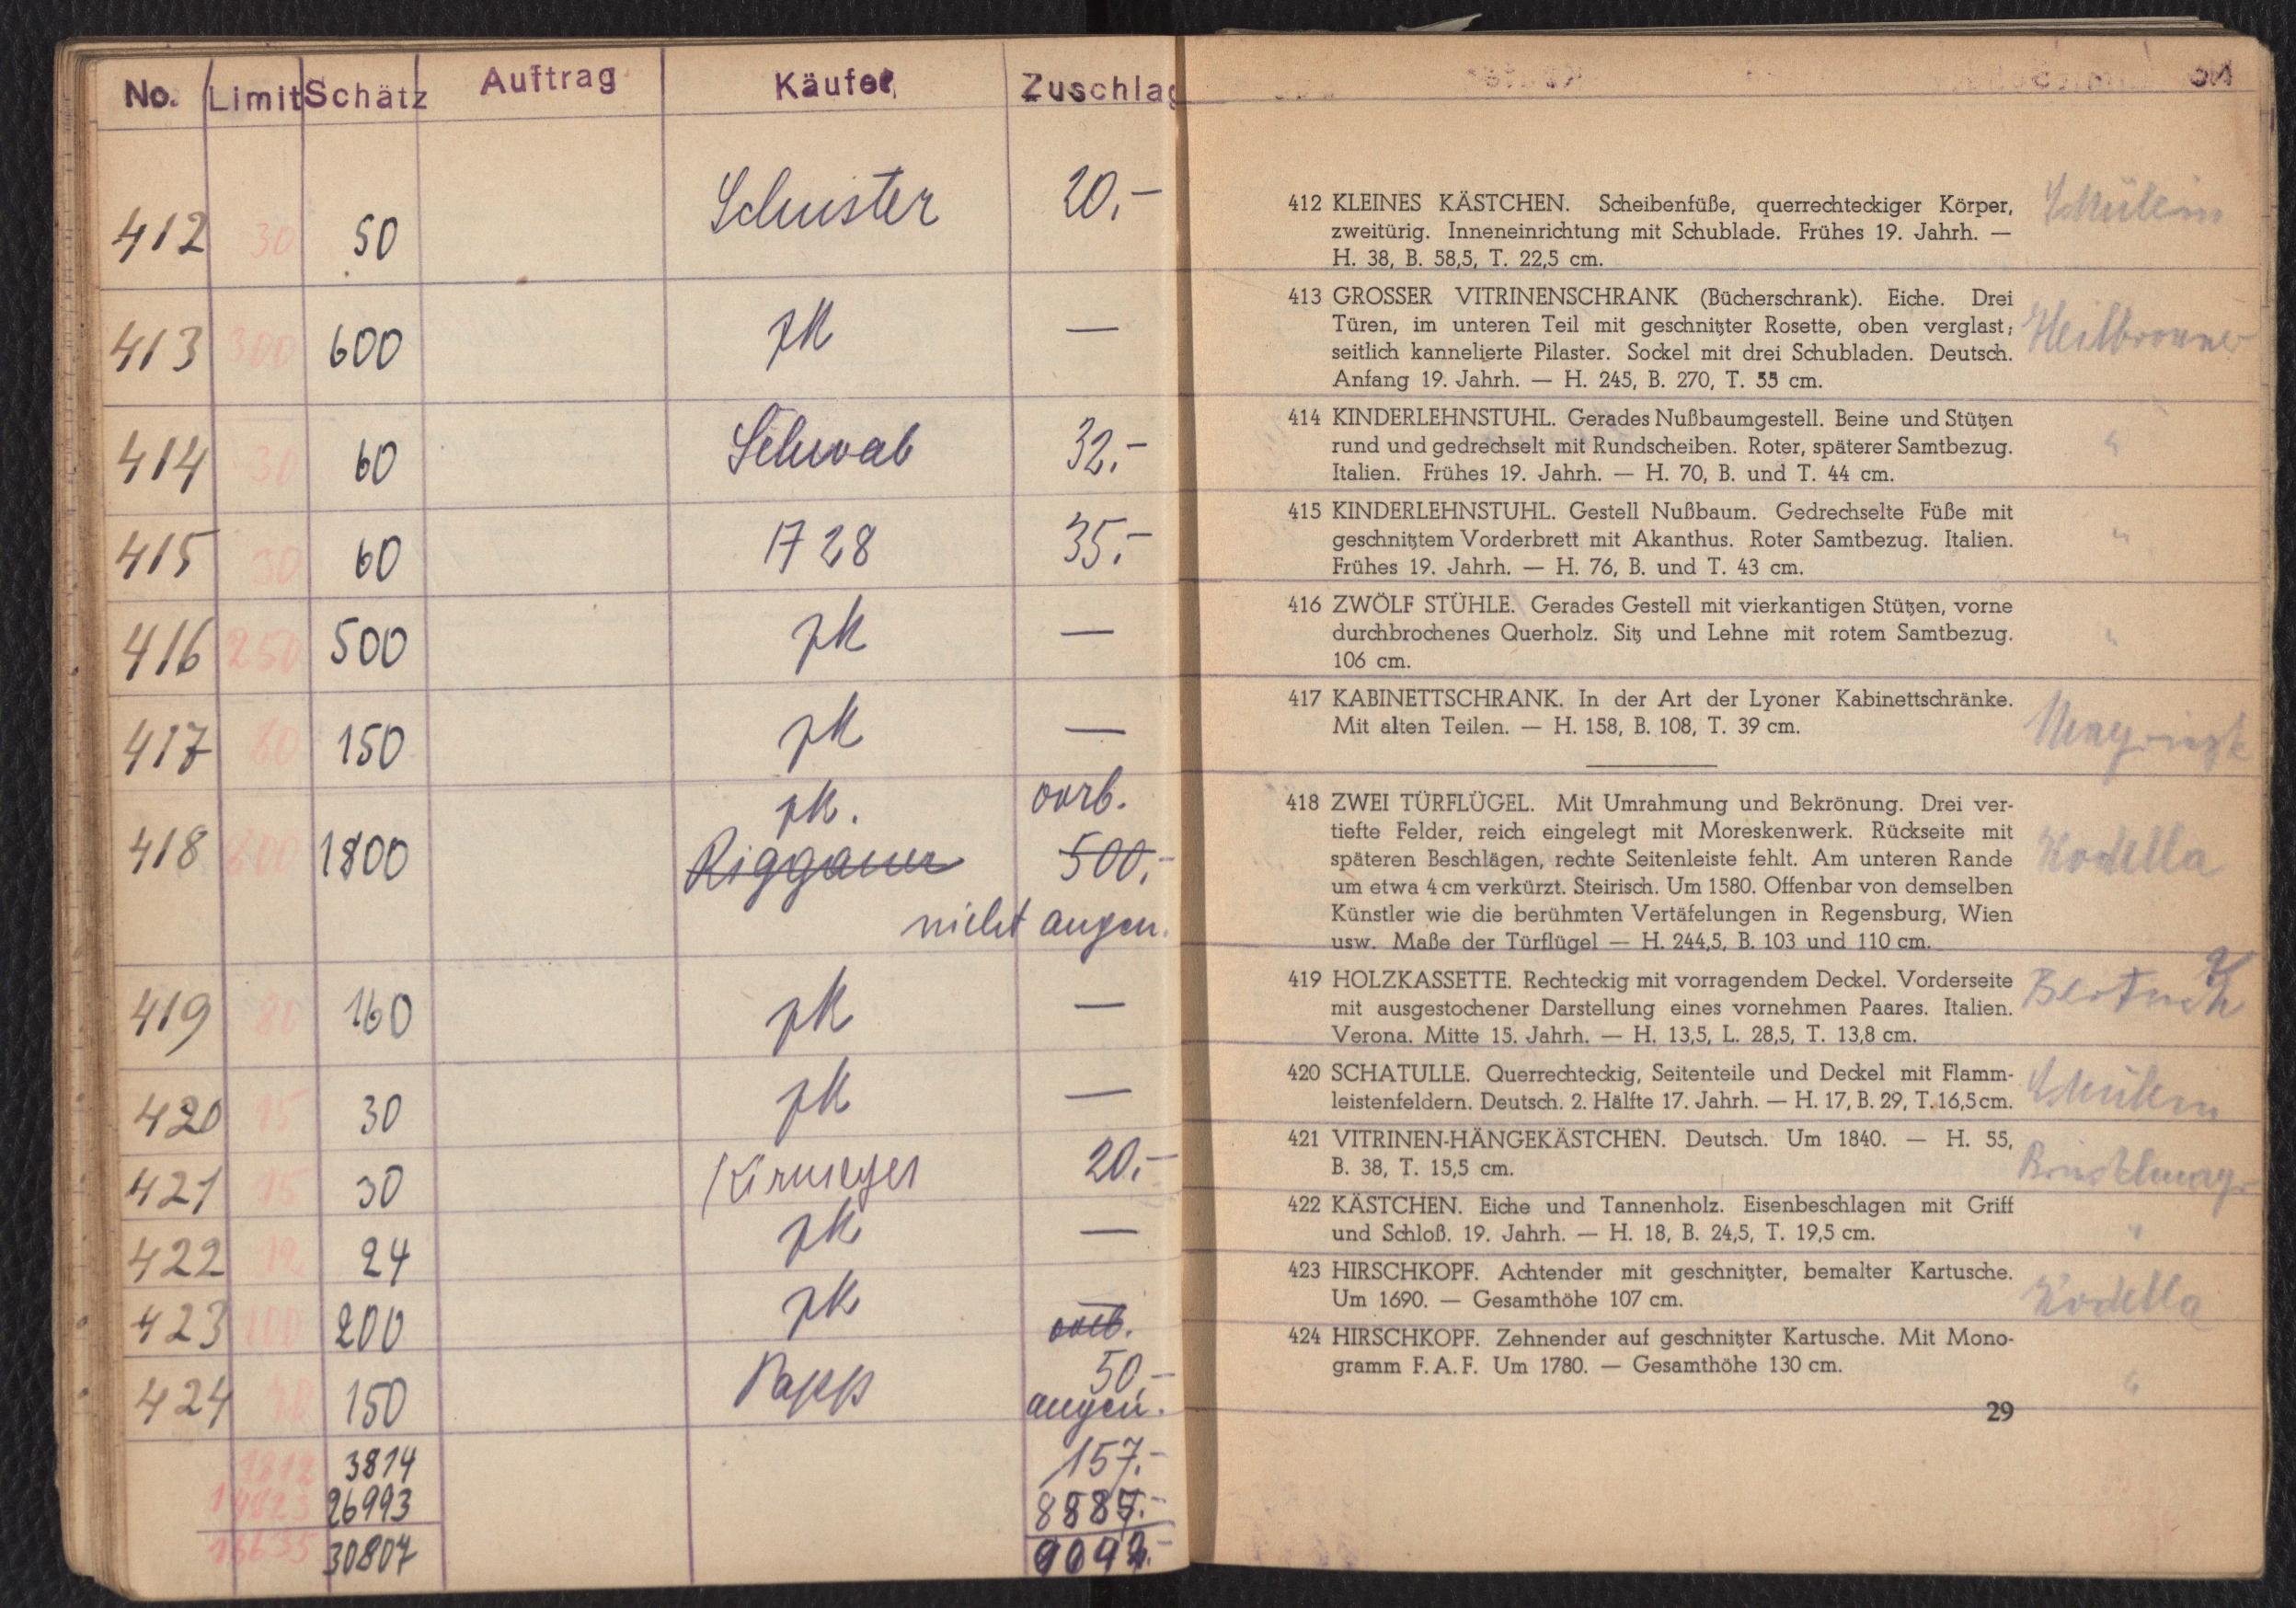 No. Limit Schätz Auftrag Käufer Zuschlag
412 30 50 Schuster 20,-
413 300 600 zk —
414 30 60 Schwab 32,-
415 30 60 1728 35,-
416 250 500 zk —
417 80 150 zk —
zk. vorb.
418 600 1800 Riggauer 500,-
nicht angen.
419 80 160 zk —
420 15 30 zk —
421 15 30 20,-
422 12 24 zk —
423 100 200 zk — vorb.
424 150 Papp 50,-
angen.
1812 3814 157,-
26993
30807
412 KLEINES KÄSTCHEN. Scheibenfüße, querrechteckiger Körper,
zweitürig. Inneneinrichtung mit Schublade. Frühes 19. Jahrh. —
H. 38, B. 58,5, T. 22,5 cm.
Schülein
413 GROSSER VITRINENSCHRANK (Bücherschrank). Eiche. Drei
Türen, im unteren Teil mit geschnitzter Rosette, oben verglast;
seitlich kannelierte Pilaster. Sockel mit drei Schubladen. Deutsch.
Anfang 19. Jahrh. — H. 245, B. 270, T. 55 cm.
Heilbronner
414 KINDERLEHNSTUHL. Gerades Nußbaumgestell. Beine und Stützen
rund und gedrechselt mit Rundscheiben. Roter, späterer Samtbezug.
Italien. Frühes 19. Jahrh. — H. 70, B. und T. 44 cm.
"
415 KINDERLEHNSTUHL. Gestell Nußbaum. Gedrechselte Füße mit
geschnitztem Vorderbrett mit Akanthus. Roter Samtbezug. Italien.
Frühes 19. Jahrh. — H. 76, B. und T. 43 cm.
"
416 ZWÖLF STÜHLE. Gerades Gestell mit vierkantigen Stützen, vorne
durchbrochenes Querholz. Sitz und Lehne mit rotem Samtbezug.
106 cm.
"
417 KABINETTSCHRANK. In der Art der Lyoner Kabinettschränke.
Mit alten Teilen. — H. 158, B. 108, T. 39 cm.
418 ZWEI TÜRFLÜGEL. Mit Umrahmung und Bekrönung. Drei ver-
tiefte Felder, reich eingelegt mit Moreskenwerk. Rückseite mit
späteren Beschlägen, rechte Seitenleiste fehlt. Am unteren Rande
um etwa 4 cm verkürzt. Steirisch. Um 1580. Offenbar von demselben
Künstler wie die berühmten Vertäfelungen in Regensburg, Wien
usw. Maße der Türflügel — H. 244,5, B. 103 und 110 cm.
Kodella
419 HOLZKASSETTE. Rechteckig mit vorragendem Deckel. Vorderseite
mit ausgestochener Darstellung eines vornehmen Paares. Italien.
Verona. Mitte 15. Jahrh. — H. 13,5, L. 28,5, T. 13,8 cm.
420 SCHATULLE. Querrechteckig, Seitenteile und Deckel mit Flamm-
leistenfeldern. Deutsch. 2. Hälfte 17. Jahrh. — H. 17, B. 29, T. 16,5 cm.
Schülein
421 VITRINEN-HÄNGEKÄSTCHEN. Deutsch. Um 1840. — H. 55,
B. 38, T. 15,5 cm.
422 KÄSTCHEN. Eiche und Tannenholz. Eisenbeschlagen mit Griff
und Schloß. 19. Jahrh. — H. 18, B. 24,5, T. 19,5 cm.
"
423 HIRSCHKOPF. Achtender mit geschnitzter, bemalter Kartusche.
Um 1690. — Gesamthöhe 107 cm.
Kodella
424 HIRSCHKOPF. Zehnender auf geschnitzter Kartusche. Mit Mono-
gramm F. A. F. Um 1780. — Gesamthöhe 130 cm.
"
29